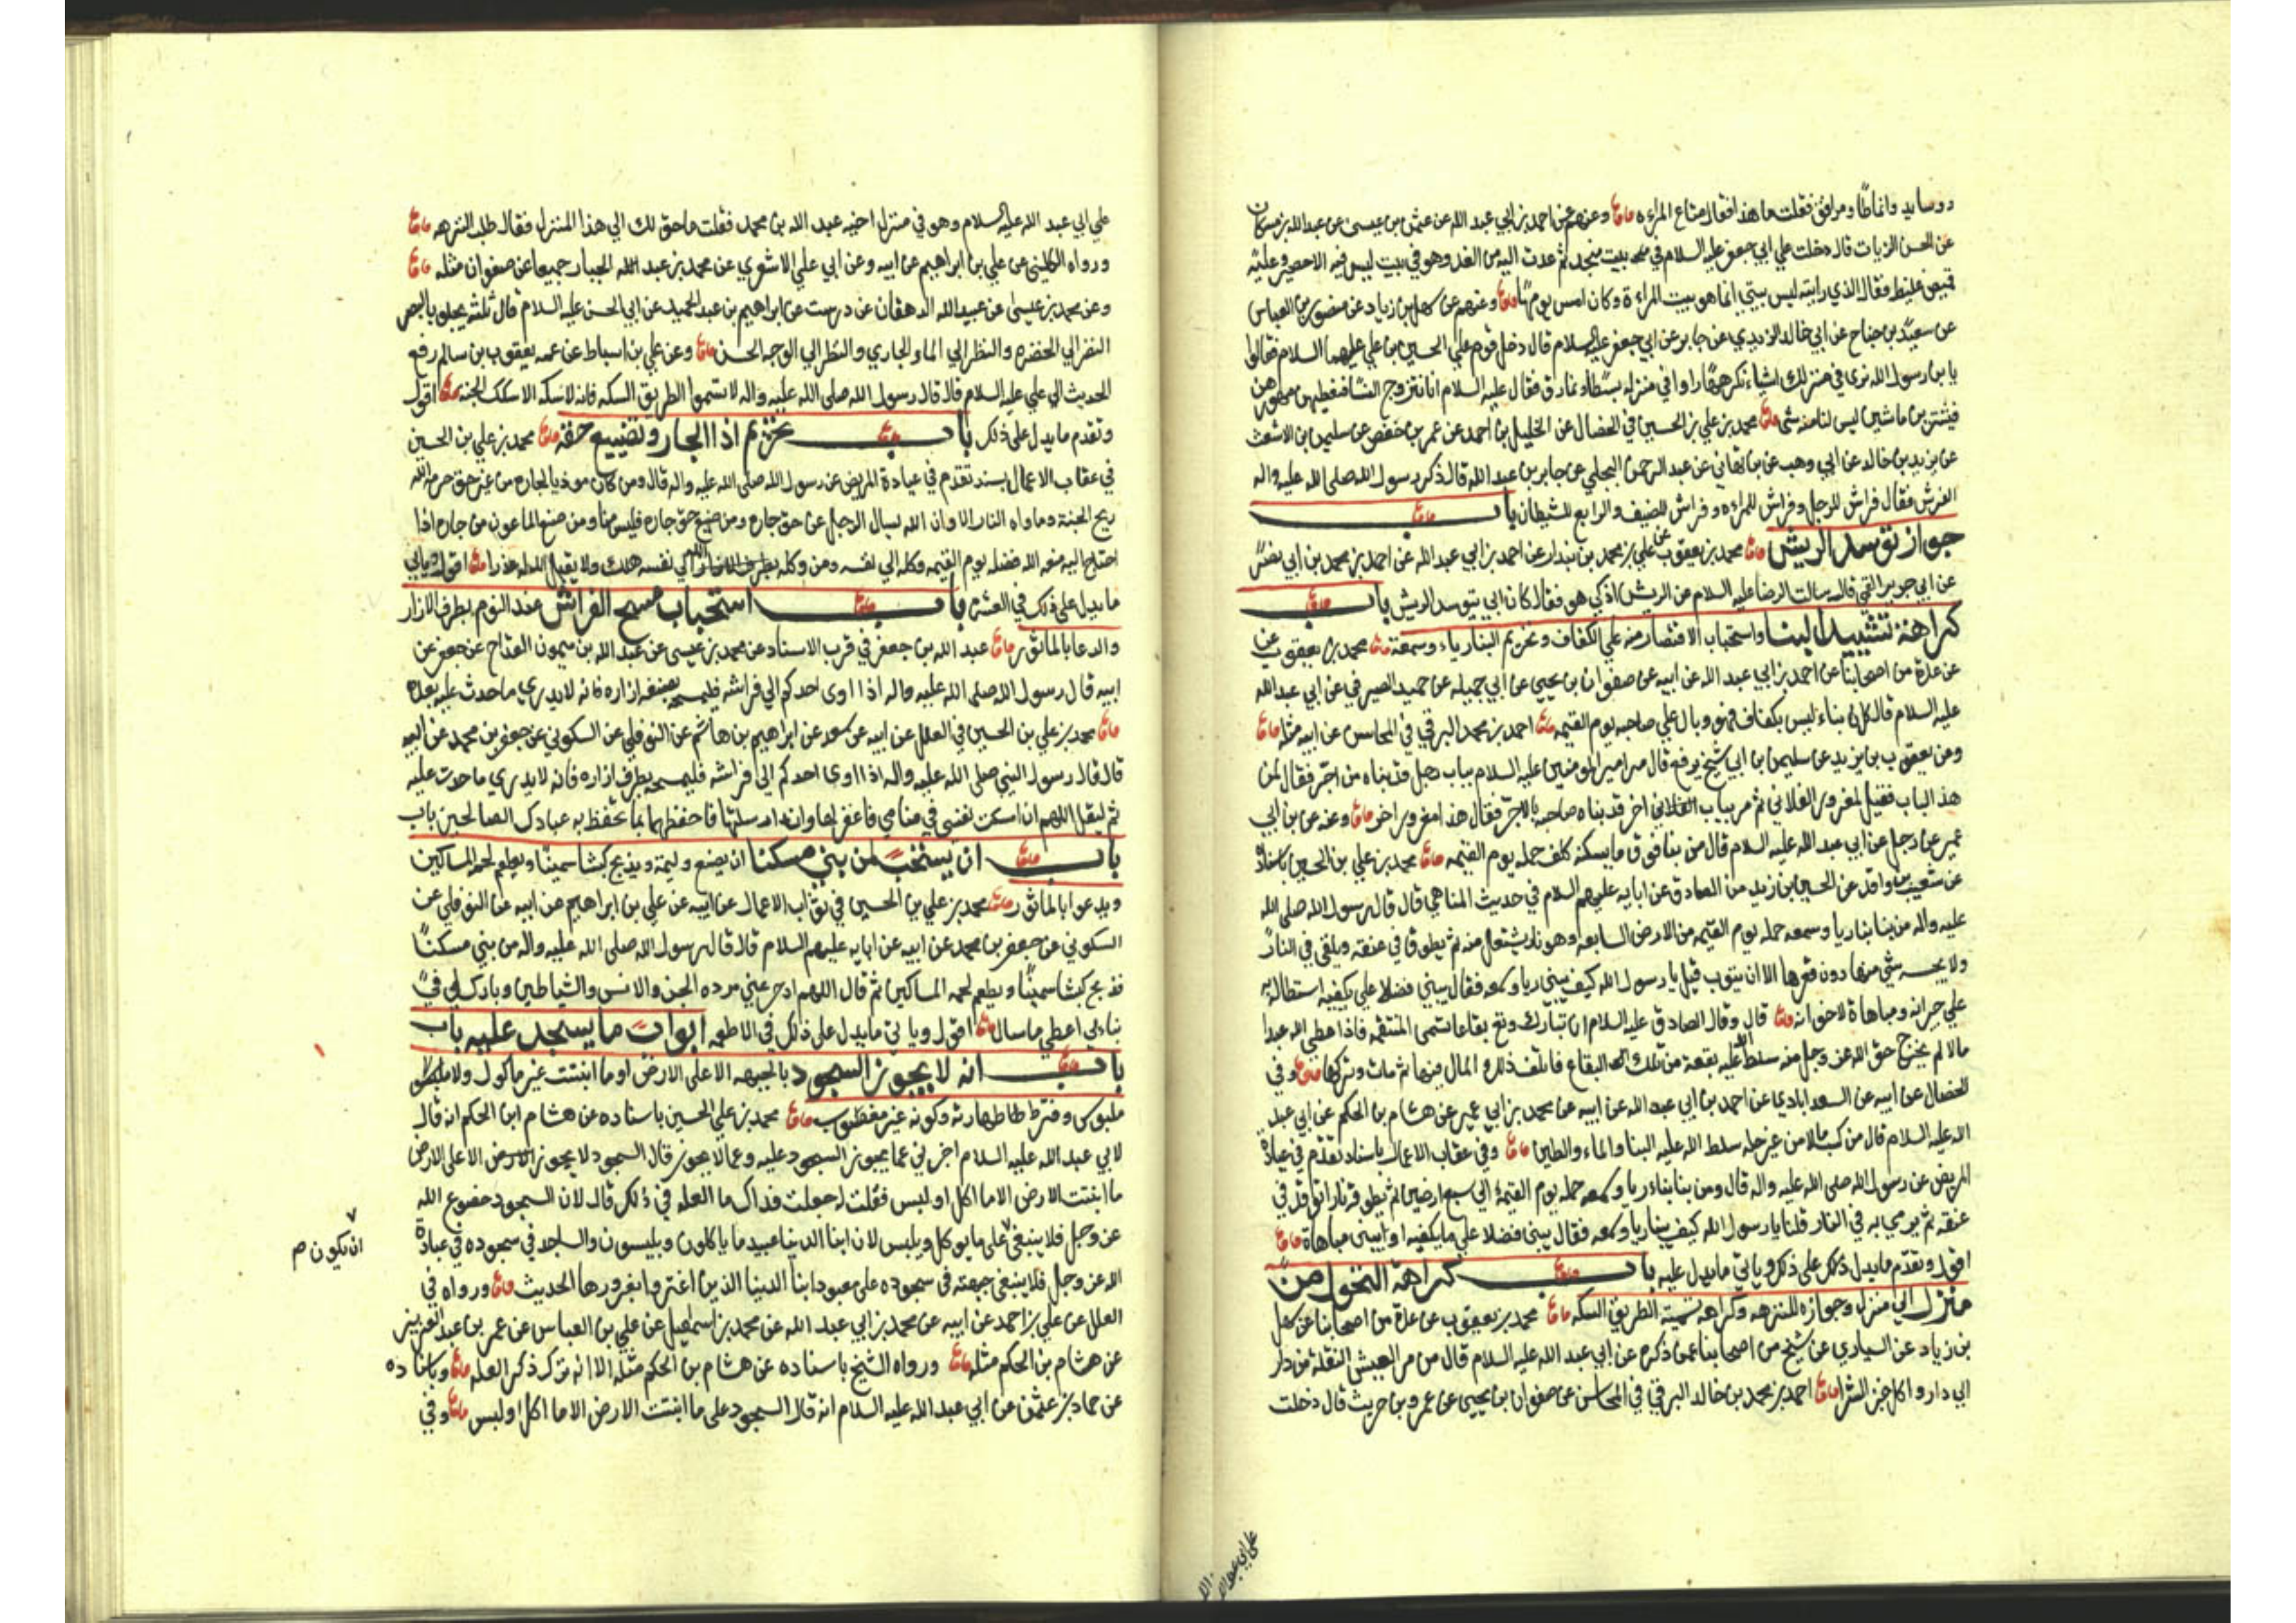 ووسايد وانماطا ومرافق فقلت ما هذا فقال متاع المراءه وعنهم عن احمد بن ابي عبد الله عن عثمن بن عيسى عن عبد الله بن مسكان
عن الحسن الزيات قال دخلت علي ابي جعفر عليه السلام في بيت منجد ثم عدت اليه من الغد وهو في بيت ليس فيه الا حصير وعليه
قميص غليظ فقال الذي رايته ليس بيتي انما هو بيت المراءة وكان امس يومها وعنهم عن سهل بن زياد عن منصور بن العباس
عن سعيد بن جناح عن ابي خالد الزيدي عن جابر عن ابي جعفر عليه السلام قال دخل قوم علي الحسين بن علي عليهما السلام فقالوا
يا بن رسول الله نرى في منزلك اشياء نكرهها وراوا في منزله بسطا ونمارق فقال عليه السلام انا نتزوج النسا فنعطيهن مهورهن
فيشترين ما شين ليس لنا منه شي محمد بن علي بن الحسين في الخصال عن الخليل بن احمد عن عمر بن حفص عن سليمن بن الاشعث
عن يزيد بن خالد عن ابي وهب عن بن هاني عن عبد الرحمن البجلي عن جابر بن عبد الله قال ذكر رسول الله صلى الله عليه واله
الفرش فقال فراش للرجل وفراش للمراءه وفراش للضيف والرابع للشيطان باب
جواز توسد الريش محمد بن يعقوب عن علي بن محمد بن بندار عن احمد بن ابي عبد الله عن احمد بن محمد بن ابي نصر
عن ابي جرير القمي قال سالت الرضا عليه السلام عن الريش اذكي هو فقال كان ابي يتوسد الريش باب
كراهة تشييد البنا واستحباب الاقتصار منه علي الكفاف وتحريم البنا رياء وسمعة محمد بن يعقوب عن
عن عدة من اصحابنا عن احمد بن ابي عبد الله عن ابيه عن صفوان بن يحيي عن ابي جميله عن حميد الصيرفي عن ابي عبد الله
عليه السلام قال كل بناء ليس بكفاف فهو وبال علي صاحبه يوم القيمه احمد بن محمد البرقي في المحاسن عن ابيه مثله
وعن يعقوب بن يزيد عن سليمن بن ابي شيخ يرفع قال مر امير المومنين عليه السلام بباب رجل قد بناه من اجر فقال لمن
هذا الباب فقيل لمغرور الفلاني ثم مر بباب اخر قد بناه صاحبه بالاجر فقال هذا مغرور اخر وعنه عن بن ابي
عمير عن رجل عن ابي عبد الله عليه السلام قال من بنا فوق ما يسكنه كلف حمله يوم القيمه محمد بن علي بن الحسين باسناده
عن شعيب بن واقد عن الحسين بن زيد عن الصادق عن ابايه عليهم السلام في حديث المناهي قال قال رسول الله صلى الله
عليه واله من بنا بنا ريا وسمعه حمله يوم القيمه من الارض السابعه وهو نار يشتعل منه ثم يطوق في عنقه ويلقي في النار
ولا يحبسه شي منها دون قعرها الا ان يتوب قيل يا رسول الله كيف يبني ريا وسمعه فقال يبني فضلا علي ما يكفيه استطالة
علي جيرانه ومباهاة لاخوانه قال وقال الصادق عليه السلام ان لله تبارك وتع بقاعا تسمى المنتقمه فاذا اعطى الله عبدا
مالا لم يخرج حق الله عز وجل منه سلط الله عليه بقعة من تلك البقاع فاتلف ذلك المال فيها ثم مات وتركها وفي
الخصال عن ابيه عن السعد ابادي عن احمد بن ابي عبد الله عن ابيه عن محمد بن ابي عمير عن هشام بن الحكم عن ابي عبد
الله عليه السلام قال من كسب مالا من غير حله سلط الله عليه البنا والماء والطين وفي عقاب الاعمال باسناد تقدم في عيادة
المريض عن رسول الله صلى الله عليه واله قال ومن بنا بناء ريا وسمعه حمله يوم القيمة الي سبع ارضين ثم يطوقه نارا توقد في
عنقه ثم يرمي به في النار قلنا يا رسول الله كيف يبنا ريا وسمعه فقال يبني فضلا علي ما يكفيه او يبني مباهاة
اقول وتقدم ما يدل علي ذلك وياتي ما يدل عليه باب كراهة التحول من
منزل الي منزل وجوازه للنزهه وكراهه تسمية الطريق السكه محمد بن يعقوب عن عدة من اصحابنا عن سهل
بن زياد عن السياري عن شيخ من اصحابنا عمن ذكره عن ابي عبد الله عليه السلام قال من مر العيش النقلة من دار
الي دار واكل خبز الشرا احمد بن محمد بن خالد البرقي في المحاسن عن صفوان بن يحيي عن عمرو بن حريث قال دخلت
علي ابي عبد الله
علي ابي عبد الله عليه السلام وهو في منزل اخيه عبد الله بن محمد فقلت ما حولك الي هذا المنزل فقال طلب النزهه
ورواه الكليني عن علي بن ابراهيم عن ابيه وعن ابي علي الاشعري عن محمد بن عبد الجبار جميعا عن صفوان مثله
وعن محمد بن عيسى عن عبيد الله الدهقان عن درست عن ابراهيم بن عبد الحميد عن ابي الحسن عليه السلام قال ثلثه يجلون البصر
النظر الي الخضره والنظر الي الماء الجاري والنظر الي الوجه الحسن وعن علي بن اسباط عن عمه يعقوب بن سالم رفع
الحديث الي علي عليه السلام قال قال رسول الله صلى الله عليه واله لا تسموا الطريق السكه فانه لا سكه الا سكك الجنه اقول
وتقدم ما يدل على ذلك باب تحريم اذا الجار وتضييع حقه محمد بن علي بن الحسين
في عقاب الاعمال بسند تقدم في عيادة المريض عن رسول الله صلى الله عليه واله قال ومن كان موذيا لجاره من غير حق حرمه الله
ريح الجنة وماواه النار الا وان الله يسال الرجل عن حق جاره ومن ضيع حق جاره فليس منا ومن منع الماعون من جاره اذا
احتاج اليه منعه الله فضله يوم القيمه وكله الي نفسه ومن وكله الله الي نفسه هلك ولا يقبل الله له عذرا اقول وياتي
ما يدل على ذلك في العشره باب استحباب مسح الفراش عند النوم بطرف الازار
والدعا بالماثور عبد الله بن جعفر في قرب الاسناد عن محمد بن عيسى عن عبد الله بن ميمون القداح عن جعفر عن
ابيه قال رسول الله صلى الله عليه واله اذا اوى احدكم الي فراشه فليمسحه بصنفه ازاره فانه لا يدري ما حدث عليه بعده
محمد بن علي بن الحسين في العلل عن ابيه عن سعد عن ابراهيم بن هاشم عن النوفلي عن السكوني عن جعفر بن محمد عن ابيه
قال قال رسول النبي صلى الله عليه واله اذا اوى احدكم الي فراشه فليمسحه بطرف ازاره فانه لا يدري ما حدث عليه
ثم ليقل اللهم ان امسكت نفسي في منامي فاغفر لها وان ارسلتها فاحفظها بما تحفظ به عبادك الصالحين باب
باب ان يستحب لمن بني مسكنا ان يصنع وليمة ويذبح كبشا سمينا ويطعم لحمه المساكين
ويدعوا بالماثور محمد بن علي بن الحسين في ثواب الاعمال عن ابيه عن علي بن ابراهيم عن ابيه عن النوفلي عن
السكوني عن جعفر بن محمد عن ابيه عن ابايه عليهم السلام قال قال رسول الله صلى الله عليه واله من بني مسكنا
فذبح كبشا سمينا ويطعم لحمه المساكين ثم قال اللهم ادحر عني مرده الجن والانس والشياطين وبارك لي في
بناءي اعطي ما سال اقول وياتي ما يدل على ذلك في الاطعمه ابواب ما يسجد عليه باب
باب انه لا يجوز السجود بالجبهه الا على الارض او ما انبتت غير ماكول ولا
ملبوس وشرط طهارته وكونه غير مغصوب محمد بن علي الحسين باسناده عن هشام ابن الحكم انه قال
لابي عبد الله عليه السلام اخبرني عما يجوز السجود عليه وعما لا يجوز قال السجود لا يجوز الا على الارض
ما انبتت الارض الا ما اكل او لبس فقلت له جعلت فداك ما العله في ذلك قال لان السجود خضوع الله
عز وجل فلا ينبغي على ما يوكل ويلبس لان ابنا الدينا عبيد ما ياكلون ويلبسون والساجد في سجوده في عبادة
ان يكون م
الله عز وجل فلا ينبغي جبهته في سجوده على معبود ابنا الدينا الذين اغتروا بغرورها الحديث ورواه في
العلل عن علي بن احمد عن ابيه عن محمد بن ابي عبد الله عن محمد بن اسمعيل عن علي بن العباس عن عمر بن عبد العزيز
عن هشام بن الحكم مثله ورواه الشيخ باسناده عن هشام بن الحكم مثله الا انه ترك ذكر العله وباسناده
عن حماد بن عثمن عن ابي عبد الله عليه السلام انه قال السجود على ما انبتت الارض الا ما اكل او لبس وفي